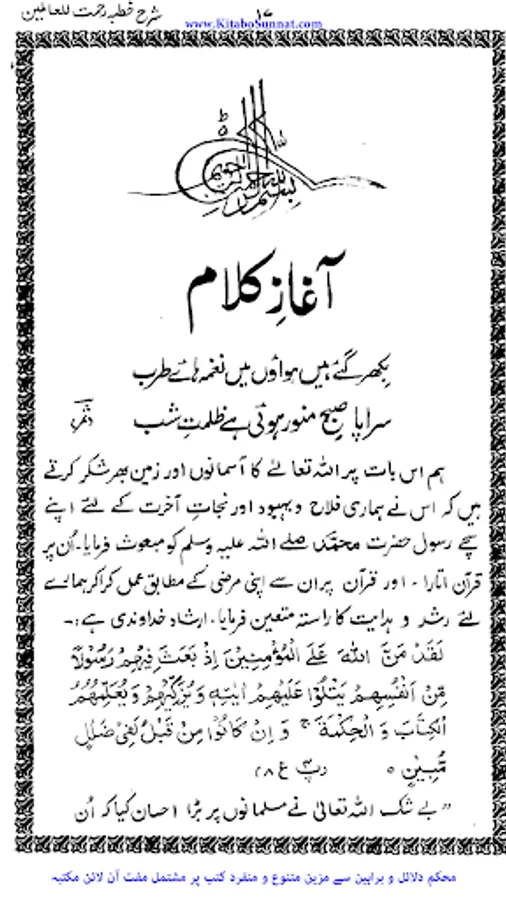 شرح خطبہ رحمت للعالمین
۱۷
www.KitaboSunnat.com
بسم اللہ الرحمن الرحیم
آغازِ کلام
بکھر گئے ہیں ہواؤں میں نغمہ ہائے طرب
سراپا صبح منور ہوئی ہے ظلمتِ شب
ہم اس بات پر اللہ تعالےٰ کا آسمانوں اور زمین بھر شکر کرتے
ہیں کہ اس نے ہماری فلاح و بہبود اور نجاتِ آخرت کے لئے اپنے
سچے رسول حضرت محمد صلے اللہ علیہ وسلم کو مبعوث فرمایا۔ اُن پر
قرآن اتارا۔ اور قرآن پر ان سے اپنی مرضی کے مطابق عمل کرا کر ہمارے
لئے رشد و ہدایت کا راستہ متعین فرمایا۔ ارشاد خداوندی ہے:۔
لَقَدْ مَنَّ اللّٰهُ عَلَى الْمُؤْمِنِيْنَ اِذْ بَعَثَ فِيْهِمْ رَسُوْلًا
مِّنْ اَنْفُسِهِمْ يَتْلُوْا عَلَيْهِمْ اٰيٰتِهٖ وَيُزَكِّيْهِمْ وَيُعَلِّمُهُمُ
الْكِتَابَ وَ الْحِكْمَةَ ۚ وَ اِنْ كَانُوْا مِنْ قَبْلُ لَفِيْ ضَلٰلٍ
مُّبِيْنٍ ه (پ ۴ ع ۸)
”بے شک اللہ تعالیٰ نے مسلمانوں پر بڑا احسان کیا کہ اُن
محکم دلائل و براہین سے مزین متنوع و منفرد کتب پر مشتمل مفت آن لائن مکتبہ